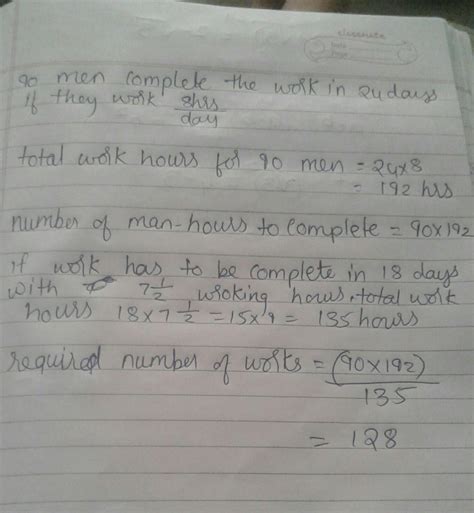 classmate
Date
Page
90 men complete the work in 24 days
if they work 8hrs
day
total work hours for 90 men = 24x8
= 192 hrs
number of man-hours to complete = 90x192
if work has to be complete in 18 days
with 7 1/2 wroking hours. total work
hours 18x7 1/2 = 15x9 = 135 hours
required number of works = (90x192)
135
= 128